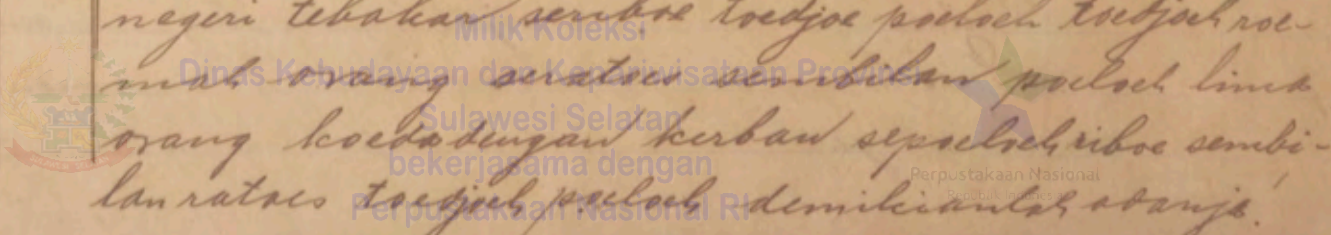 negeri tebakar seriboe toedjoe poeloeh toedjoeh roe-
mah orang seratoes sembilan poeloeh lima
orang koeda dengan kerbau sepoeloeh riboe sembi-
lan ratoes toedjoeh poeloeh demikianlah adanja.
Milik Koleksi
Dinas Kebudayaan dan Kepariwisataan Provinsi
Sulawesi Selatan
bekerjasama dengan
Perpustakaan Nasional RI
Perpustakaan Nasional
Republik Indonesia